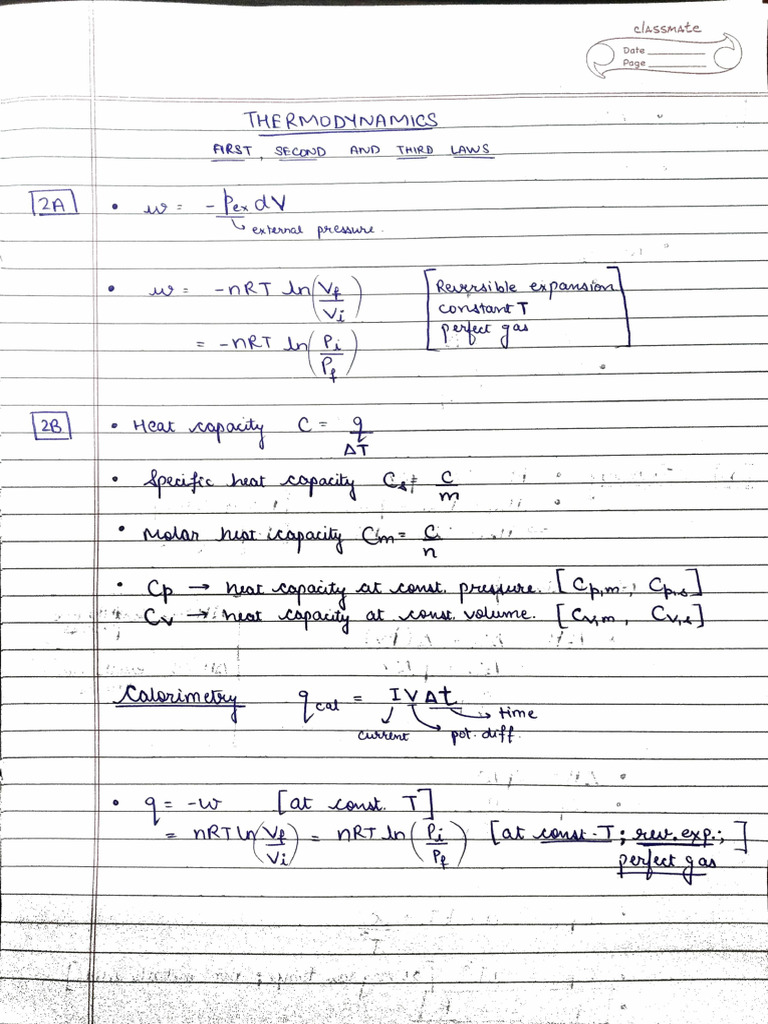 classmate
Date
Page
THERMODYNAMICS
FIRST, SECOND AND THIRD LAWS
2A • w = -Pex dV
↳ external pressure.
• w = -nRT ln(Vf/Vi) [Reversible expansion
constant T
= -nRT ln(Pi/Pf) perfect gas]
2B • Heat capacity C = q/ΔT
• Specific heat capacity Cs = C/m
• Molar heat capacity Cm = C/n
• Cp → heat capacity at const. pressure. [Cp,m, Cp,s]
Cv → heat capacity at const. volume. [Cv,m, Cv,s]
Calorimetry q cal = I V Δt
→ time
current pot. diff.
• q = -w [at const. T]
= nRT ln(Vf/Vi) = nRT ln(Pi/Pf) [at const. T; rev. exp.;
perfect gas]